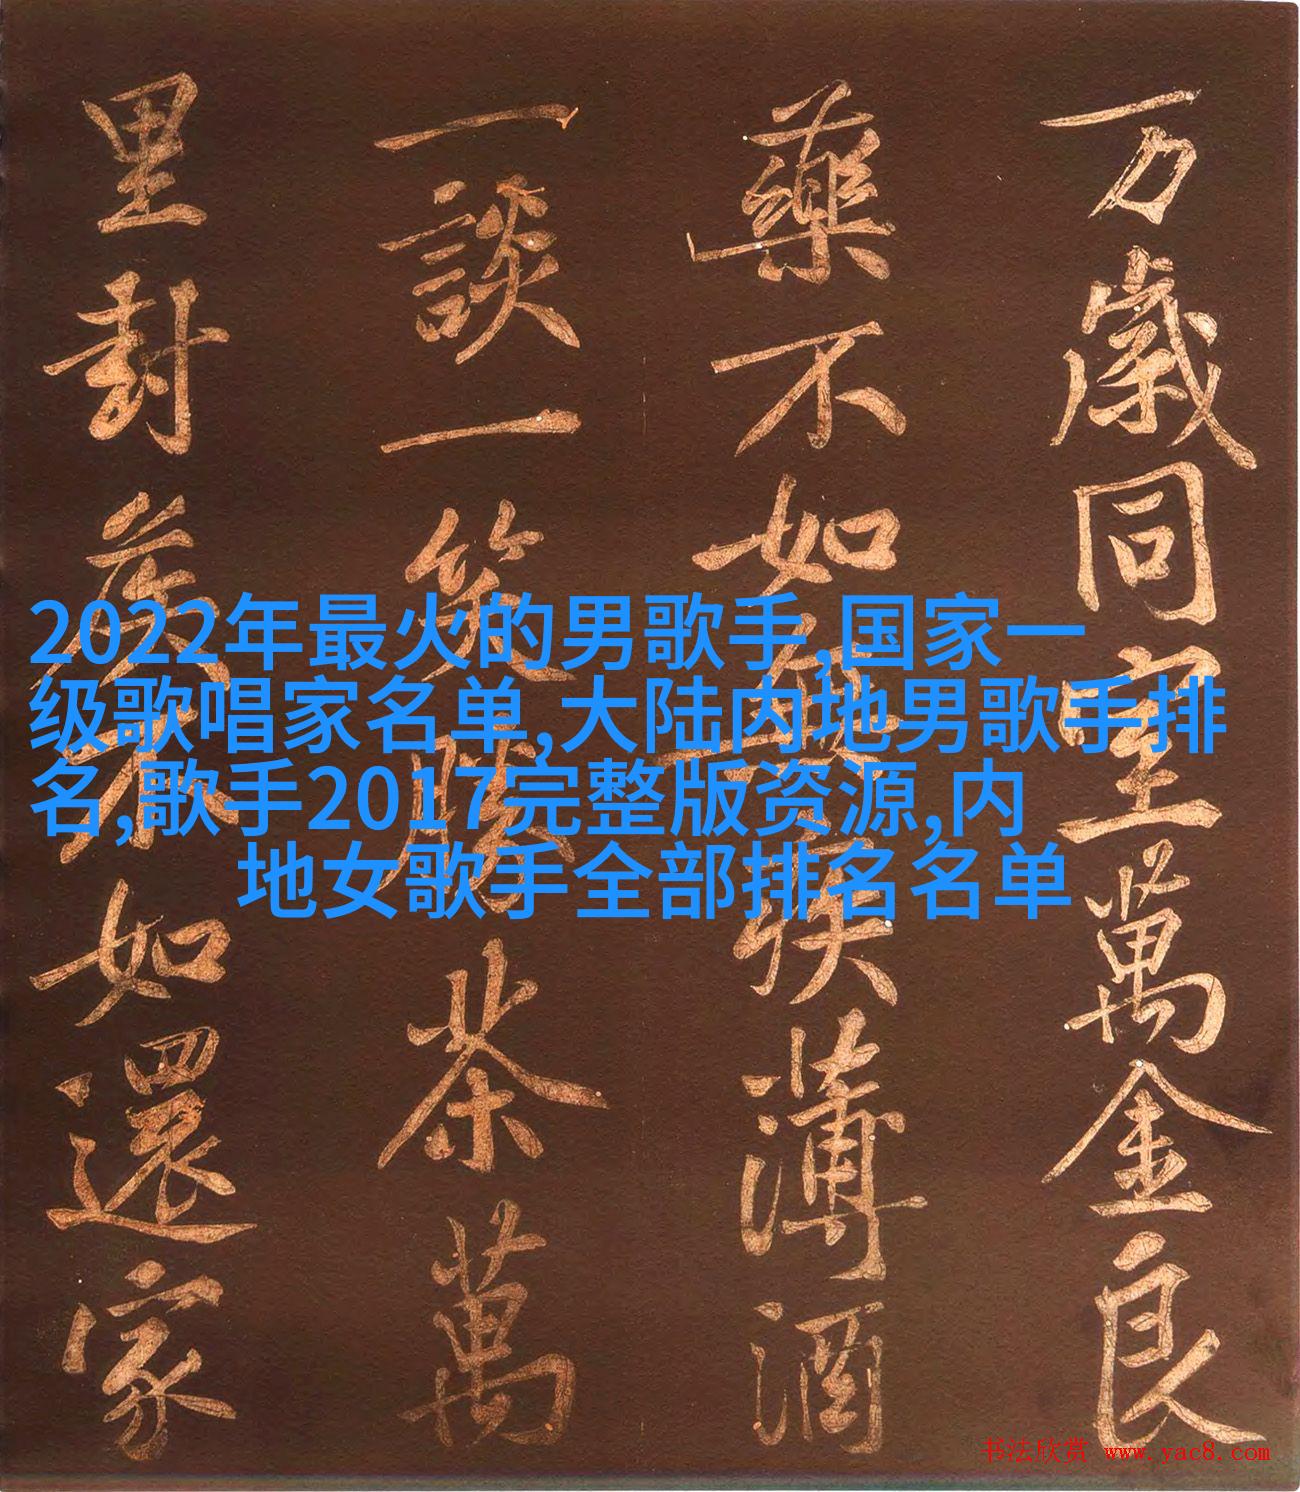 万歲同室萬金良
藥不如無疾薄酒
一談一笑勝茶萬
里封侯不如還家
2022年最火的男歌手,国家一
级歌唱家名单,大陆内地男歌手排
名,歌手2017完整版资源,内
地女歌手全部排名名单
书法欣赏 www.yac8.com